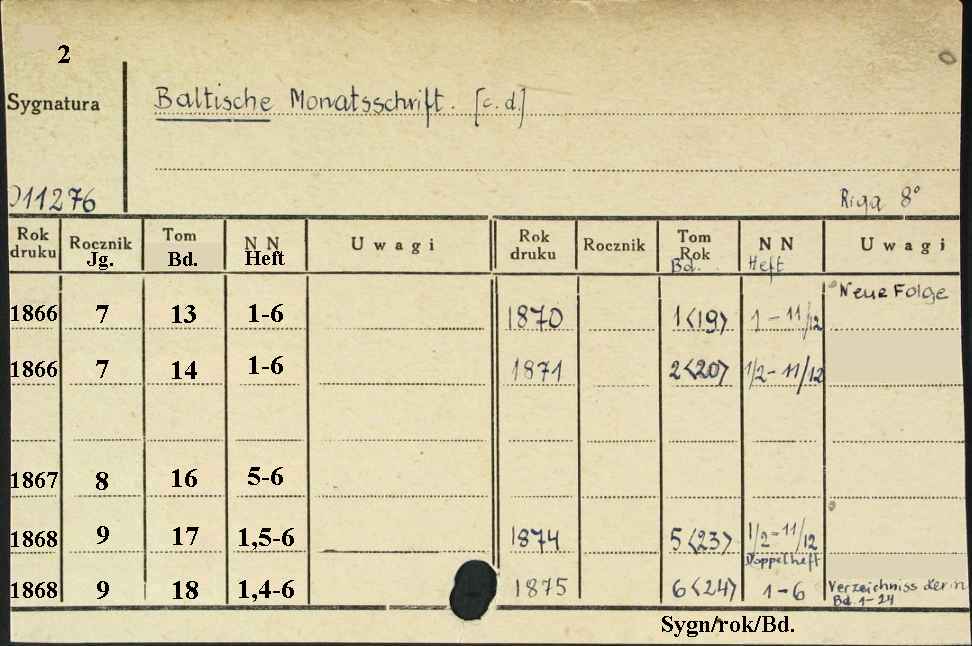 2
Sygnatura
Baltische Monatsschrift. [c.d.]
011276
Riga 8°
Rok druku Rocznik Jg. Tom Bd. N N Heft Uwagi Rok druku Rocznik Tom Rok Bd. N N Heft Uwagi
Neue Folge
1866 7 13 1-6 1870 1<19> 1-11/12
1866 7 14 1-6 1871 2<20> 1/2-11/12
1867 8 16 5-6
1868 9 17 1,5-6 1874 5<23> 1/2-11/12
Doppelheft
1868 9 18 1,4-6 1875 6<24> 1-6 Verzeichniss der n
Bd. 1-24
Sygn/rok/Bd.